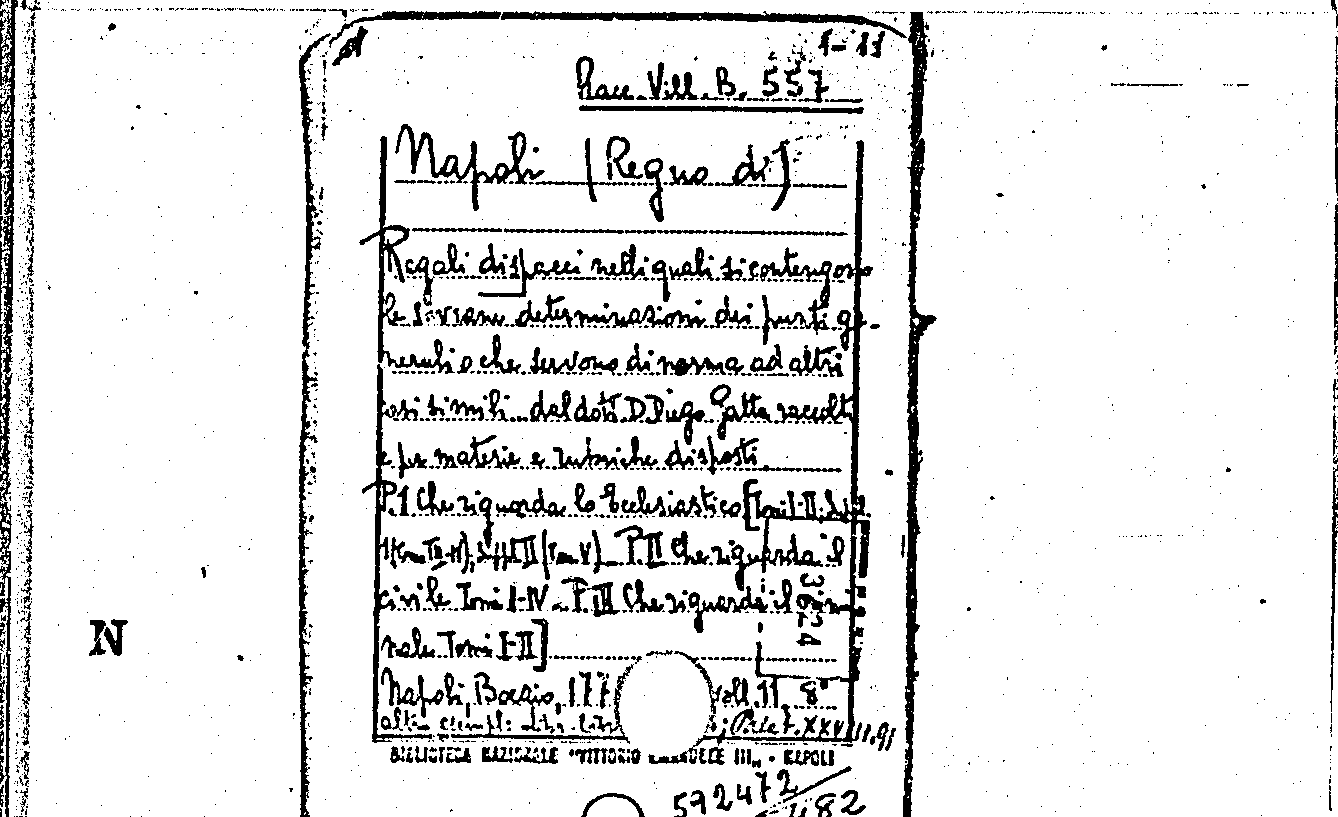 1-11
Race. Vill. B. 557
Napoli (Regno di)
Regali dispacci nelli quali si contengono
le sovrane determinazioni dei punti ge-
nerali o che servono di norma ad altri
casi simili dal dott. D. Diego Gatta raccolti
e per materie e rubriche disposti.
P. I Che riguarda lo Ecclesiastico [Tomi I-II
(Tom. V) P. II Che riguarda il
civile Tomi I-IV - P. III Che riguarda il crimi
nale Tomi I-II]
3624
N
Napoli, Boezio, 177 voll. 11, 8°
altri esempl. ; Palat. XXVIII.91
BIBLIOTECA NAZIONALE "VITTORIO EMANUELE III" - NAPOLI
592472
482